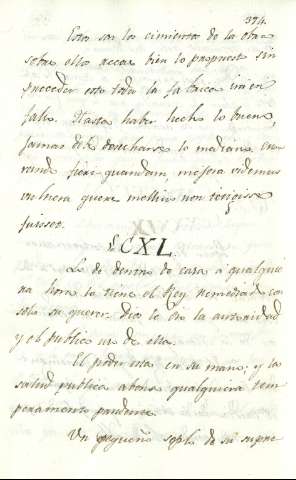 374.
Estos son los cimientos de la obra
sobre ellos acaso bien lo propuesto sin
preceder esto toda la fabrica irá en
falso. Hasta haber hecho lo bueno,
jamas debe desecharse lo mediano
quandam, videmus
vulnera que melius non tetigisse
fuisset.
CXL.
Lo de dentro de casa á qualquie
ra hora lo tiene el Rey remediado con
solo su querer: Dios le dio la autoridad
y el publico uso de ella.
El poder esta en su mano; y la
salud publica abona qualquiera tem
peramento prudente.
Un pequeño soplo de su supre